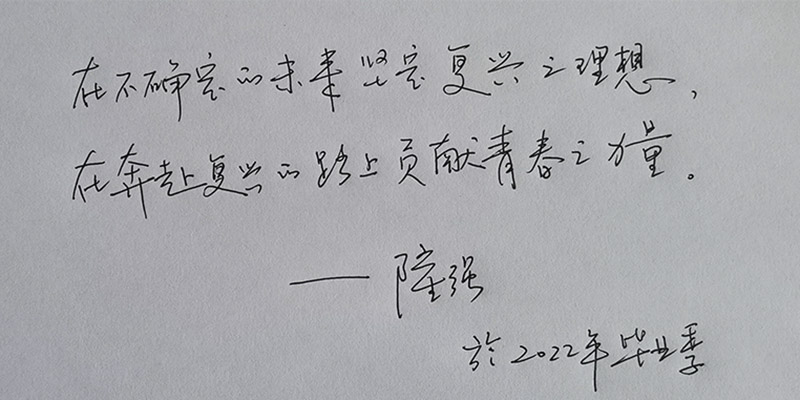 在不确定的未来坚定复兴之理想,
在奔赴复兴的路上贡献青春之力量。
—— 强
于2022年毕业季